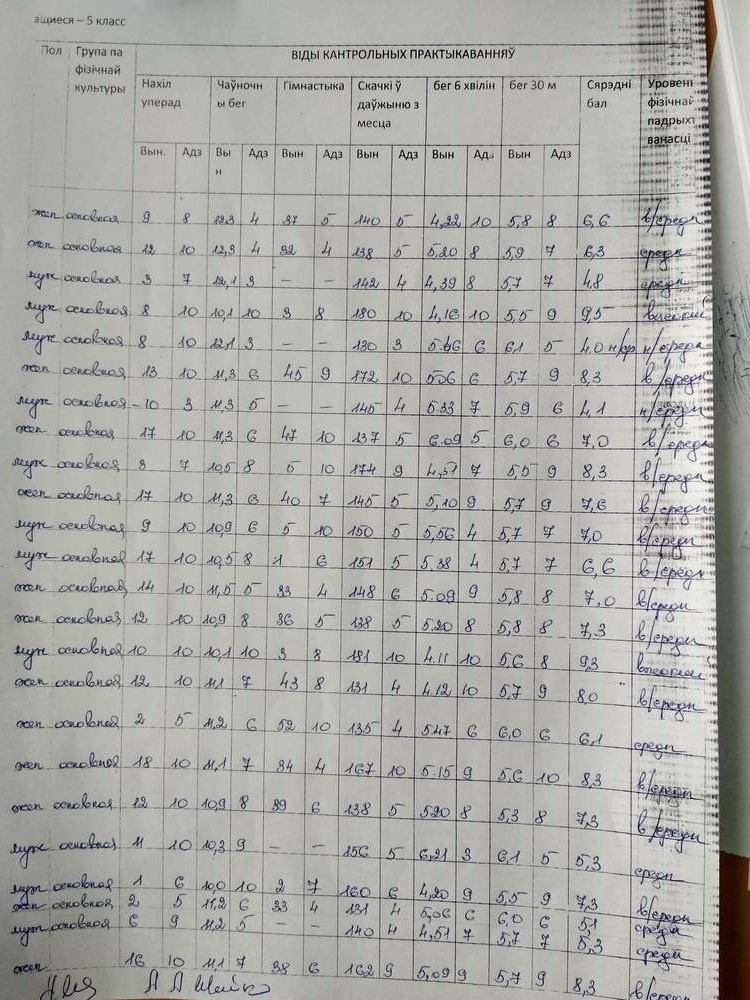 ащиеся – 5 класс
Пол Група па фізічнай культуры ВІДЫ КАНТРОЛЬНЫХ ПРАКТЫКАВАННЯЎ
Нахіл уперад Чаўночны бег Гімнастыка Скачкі ў даўжыню з месца бег 6 хвілін бег 30 м Сярэдні бал Уровень фізічнай падрыхтванасці
Вын. Адз Вын Адз Вын Адз Вын Адз Вын Адз Вын Адз
жен основная 9 8 12.3 4 37 5 140 5 4,22 10 5,8 8 6,6 в/средн
жен основная 12 10 12,3 4 32 4 138 5 5.20 8 5,9 7 6,3 средн
муж основная 3 7 12,1 3 – – 142 4 4,39 8 5,7 7 4,8 средн
муж основная 8 10 10,1 10 3 8 180 10 4,16 10 5,5 9 9,5 высокий
муж основная 8 10 12.1 3 – – 130 3 5.46 6 6.1 5 4.0 н/ср н/средн
жен основная 13 10 11,3 6 45 9 172 10 5.06 6 5,7 9 8,3 в/средн
муж основная -10 3 11.3 5 – – 145 4 5.33 7 5,9 6 4,1 н/средн
жен основная 17 10 11,3 6 47 10 137 5 6.09 5 6,0 6 7,0 в/средн
муж основная 3 7 10,5 8 5 10 174 9 4,51 7 5,5 9 8,3 в/средн
жен основная 17 10 11,3 6 40 7 145 5 5,10 9 5,7 9 7,6 в/средн
муж основная 9 10 10,9 6 5 10 150 5 5,56 4 5,7 7 7,0 в/средн
муж основная 17 10 10,5 8 1 6 151 5 5,38 4 5,7 7 6,6 в/средн
жен основная 14 10 11,5 5 33 4 148 6 5.09 9 5,8 8 7,0 в/средн
жен основная 12 10 10,9 8 36 5 138 5 5.20 8 5,8 8 7,3 в/средн
муж основная 10 10 10,1 10 3 8 181 10 4.11 10 5,6 8 9,3 высокий
жен основная 12 10 11.1 7 43 8 131 4 4.12 10 5,7 9 8,0 в/средн
жен основная 2 5 11,2 6 52 10 135 4 5.47 6 6,0 6 6,1 средн
жен основная 18 10 11,1 7 34 4 167 10 5.15 9 5.6 10 8,3 в/средн
жен основная 12 10 10,9 8 39 6 138 5 5.20 8 5,3 8 7,3 в/средн
муж основная 11 10 10,3 9 – – 156 5 6,21 3 6,1 5 5,3 средн
муж основная 1 6 10,0 10 2 7 160 6 4,20 9 5,5 9 7,3 в/средн
жен основная 2 5 11,2 6 33 4 131 4 5,06 6 6,0 6 5,1 средн
муж основная 6 9 11.2 5 – – 140 4 4,51 7 5,7 7 5,3 средн
жен 16 10 11,1 7 38 6 162 9 5,09 9 5,7 9 8,3 в/средн